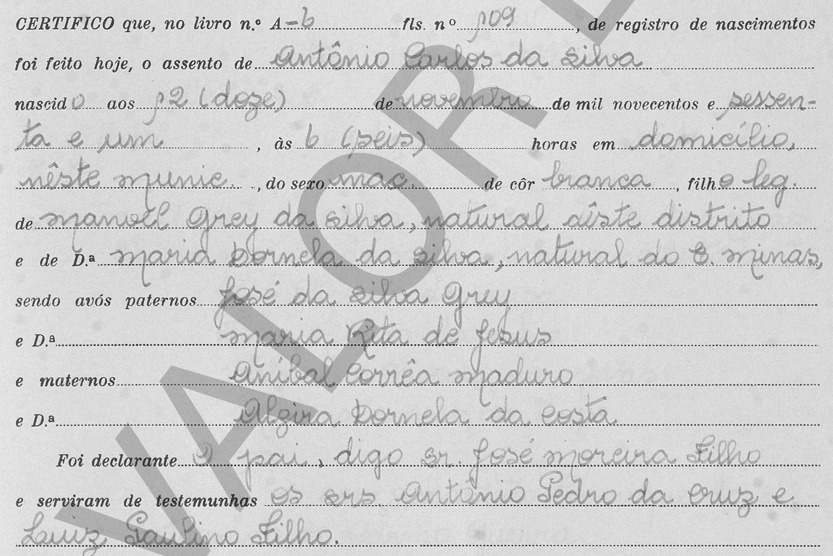 CERTIFICO que, no livro n.º A-6 fls. nº 109, de registro de nascimentos
foi feito hoje, o assento de Antônio Carlos da Silva
nascido aos 12 (doze) de novembro de mil novecentos e sessen-
ta e um, às 6 (seis) horas em domicílio,
nêste munic., do sexo masc. de côr branca, filho leg.
de Manoel Grey da Silva, natural dêste distrito
e de D.ª Maria Dornela da Silva, natural do E. Minas,
sendo avós paternos José da Silva Grey
e D.ª Maria Rita de Jesus
e maternos Anibal Corrêa Maduro
e D.ª Alzira Dornela da Costa
Foi declarante O pai, digo sr. José Moreira Filho
e serviram de testemunhas os srs Antônio Pedro da Cruz e
Luiz Paulino Filho.
VALOR